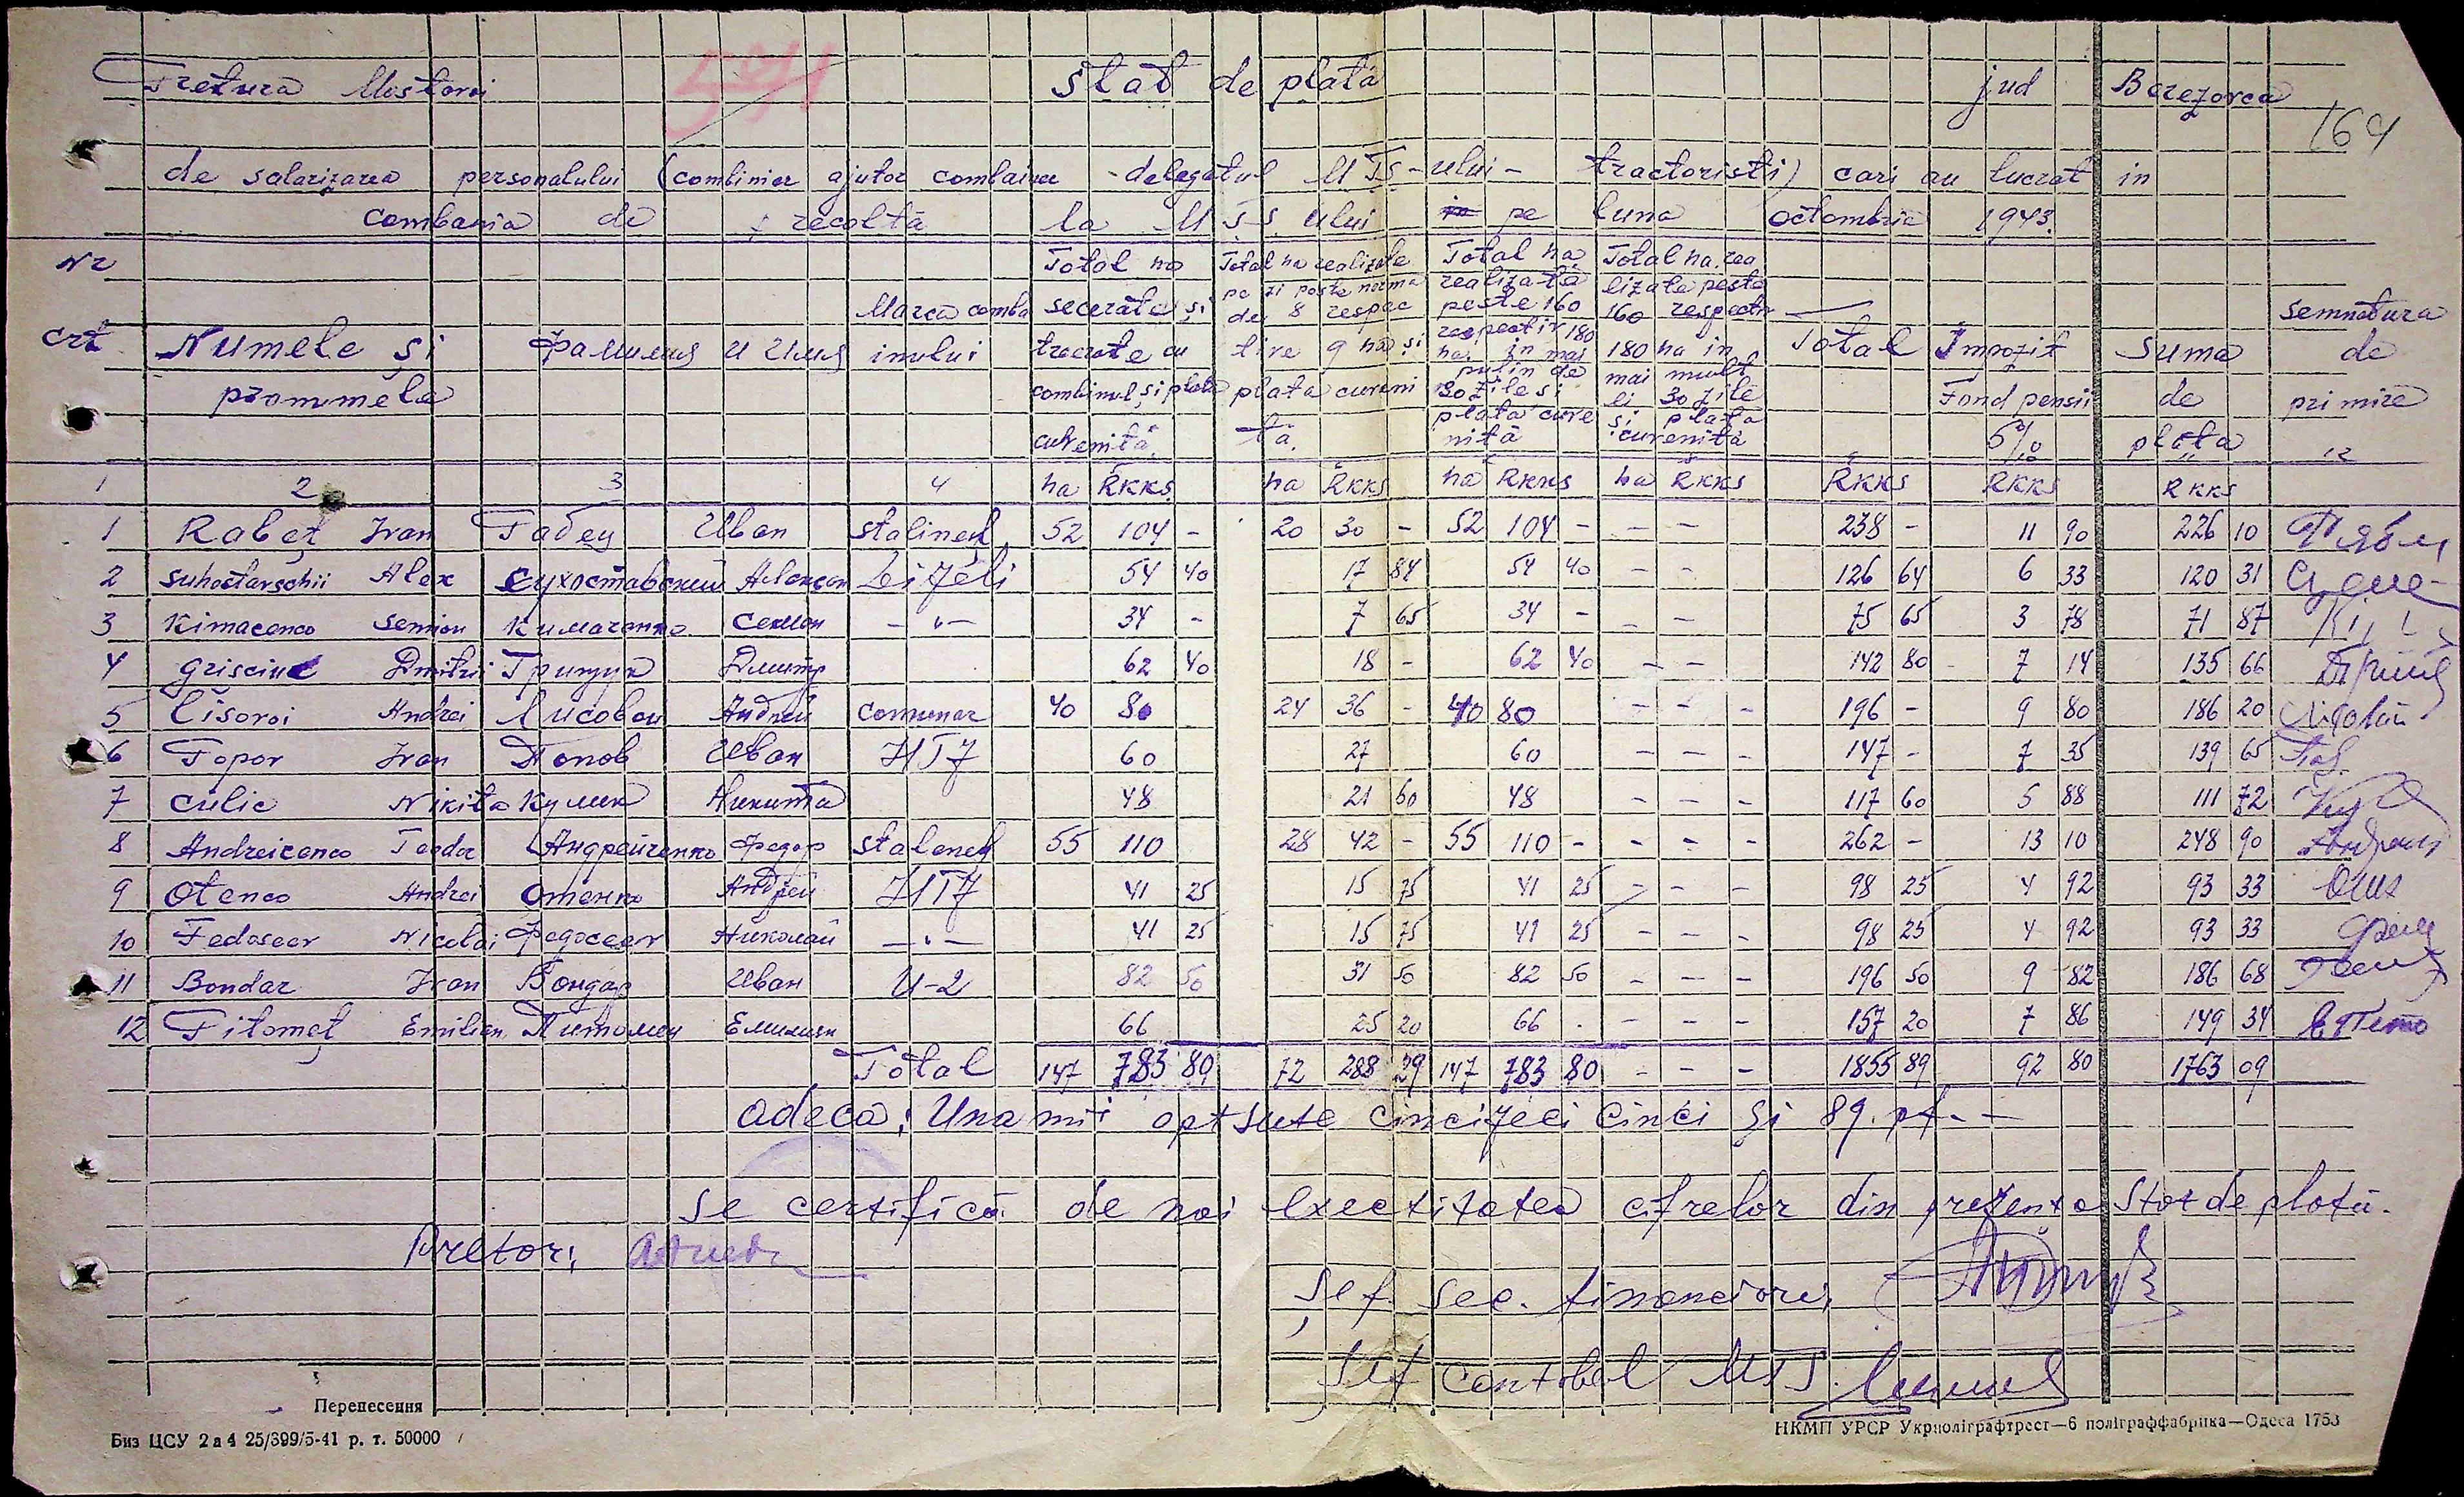 Pretura Mostovoi 591 Stat de plată jud Berezovca
164
de salarizarea personalului (combiner ajutor combainer - delegatul MTS-ului - tractoristi) cari au lucrat in
combania de recoltă la M.T.S. ului pe luna octombrie 1943.
Nr crt
Numele și pronumele
Фамилия и Имя
Marca combainului
Total ha secerate și treerate cu combinul și plata cuvenită
Total ha realizate pe zi peste norma de 8 respective 9 ha și plata cuvenită.
Total ha. realizată peste 160 respectiv 180 ha. in mai putin de 30 zile si plata cuvenită
Total ha. realizate peste 160 respectiv 180 ha in mai mult de 30 zile și plata cuvenită
Total
Impozit Fond pensii 5%
Suma de plata
semnatura de primire
1 2 3 4 ha RKKS ha RKKS ha RKKS ha RKKS RKKS RKKS RKKS 12
1 Rabeț Ivan Рабец Иван Stalineț 52 104 - 20 30 - 52 104 - - - 238 - 11 90 226 10
2 Suhostavschii Alex Сухоставский Александ Leizeli 54 40 17 84 54 40 - - 126 64 6 33 120 31
3 Kimacenco Semion Кимаченко Семион -"- 34 - 7 65 34 - - - 75 65 3 78 71 87
4 Grisciuc Dmitrii Грищук Дмитр 62 40 18 - 62 40 - - 142 80 7 14 135 66
5 Lisovoi Andrei Лисовои Андрей Comunar 40 80 24 36 - 40 80 - - - 196 - 9 80 186 20
6 Popov Ivan Попов Иван ХТЗ 60 27 60 - - - 147 - 7 35 139 65
7 Culic Nikita Кулик Никита 48 21 60 48 - - - 117 60 5 88 111 72
8 Andreicenco Teodor Андрейченко Федор Stalineț 55 110 28 42 - 55 110 - - - - 262 - 13 10 248 90
9 Otenco Andrei Отенко Андрей ХТЗ 41 25 15 75 41 25 - - - 98 25 4 92 93 33
10 Fedoseev Nicolai Федосеев Николай -"- 41 25 15 75 41 25 - - - 98 25 4 92 93 33
11 Bondar Ivan Бондар Иван U-2 82 50 31 50 82 50 - - - 196 50 9 82 186 68
12 Pitomeț Emilian Питомец Емилиян 66 25 20 66 - - - 157 20 7 86 149 34
Total 147 783 80 72 288 29 147 783 80 - - - 1855 89 92 80 1763 09
adecă: Una mii opt sute cincizeci cinci și 89. pf. -
Se certifică de noi exectitatea cifrelor din prezenta Stat de plată.
Pretor,
Șef sec. financiare,
Șef contabel MTS.
Перенесення
Биз ЦСУ 2 а 4 25/399/5-41 р. т. 50000
НКМП УРСР Укрполіграфтрест—6 поліграффабрика—Одеса 1753